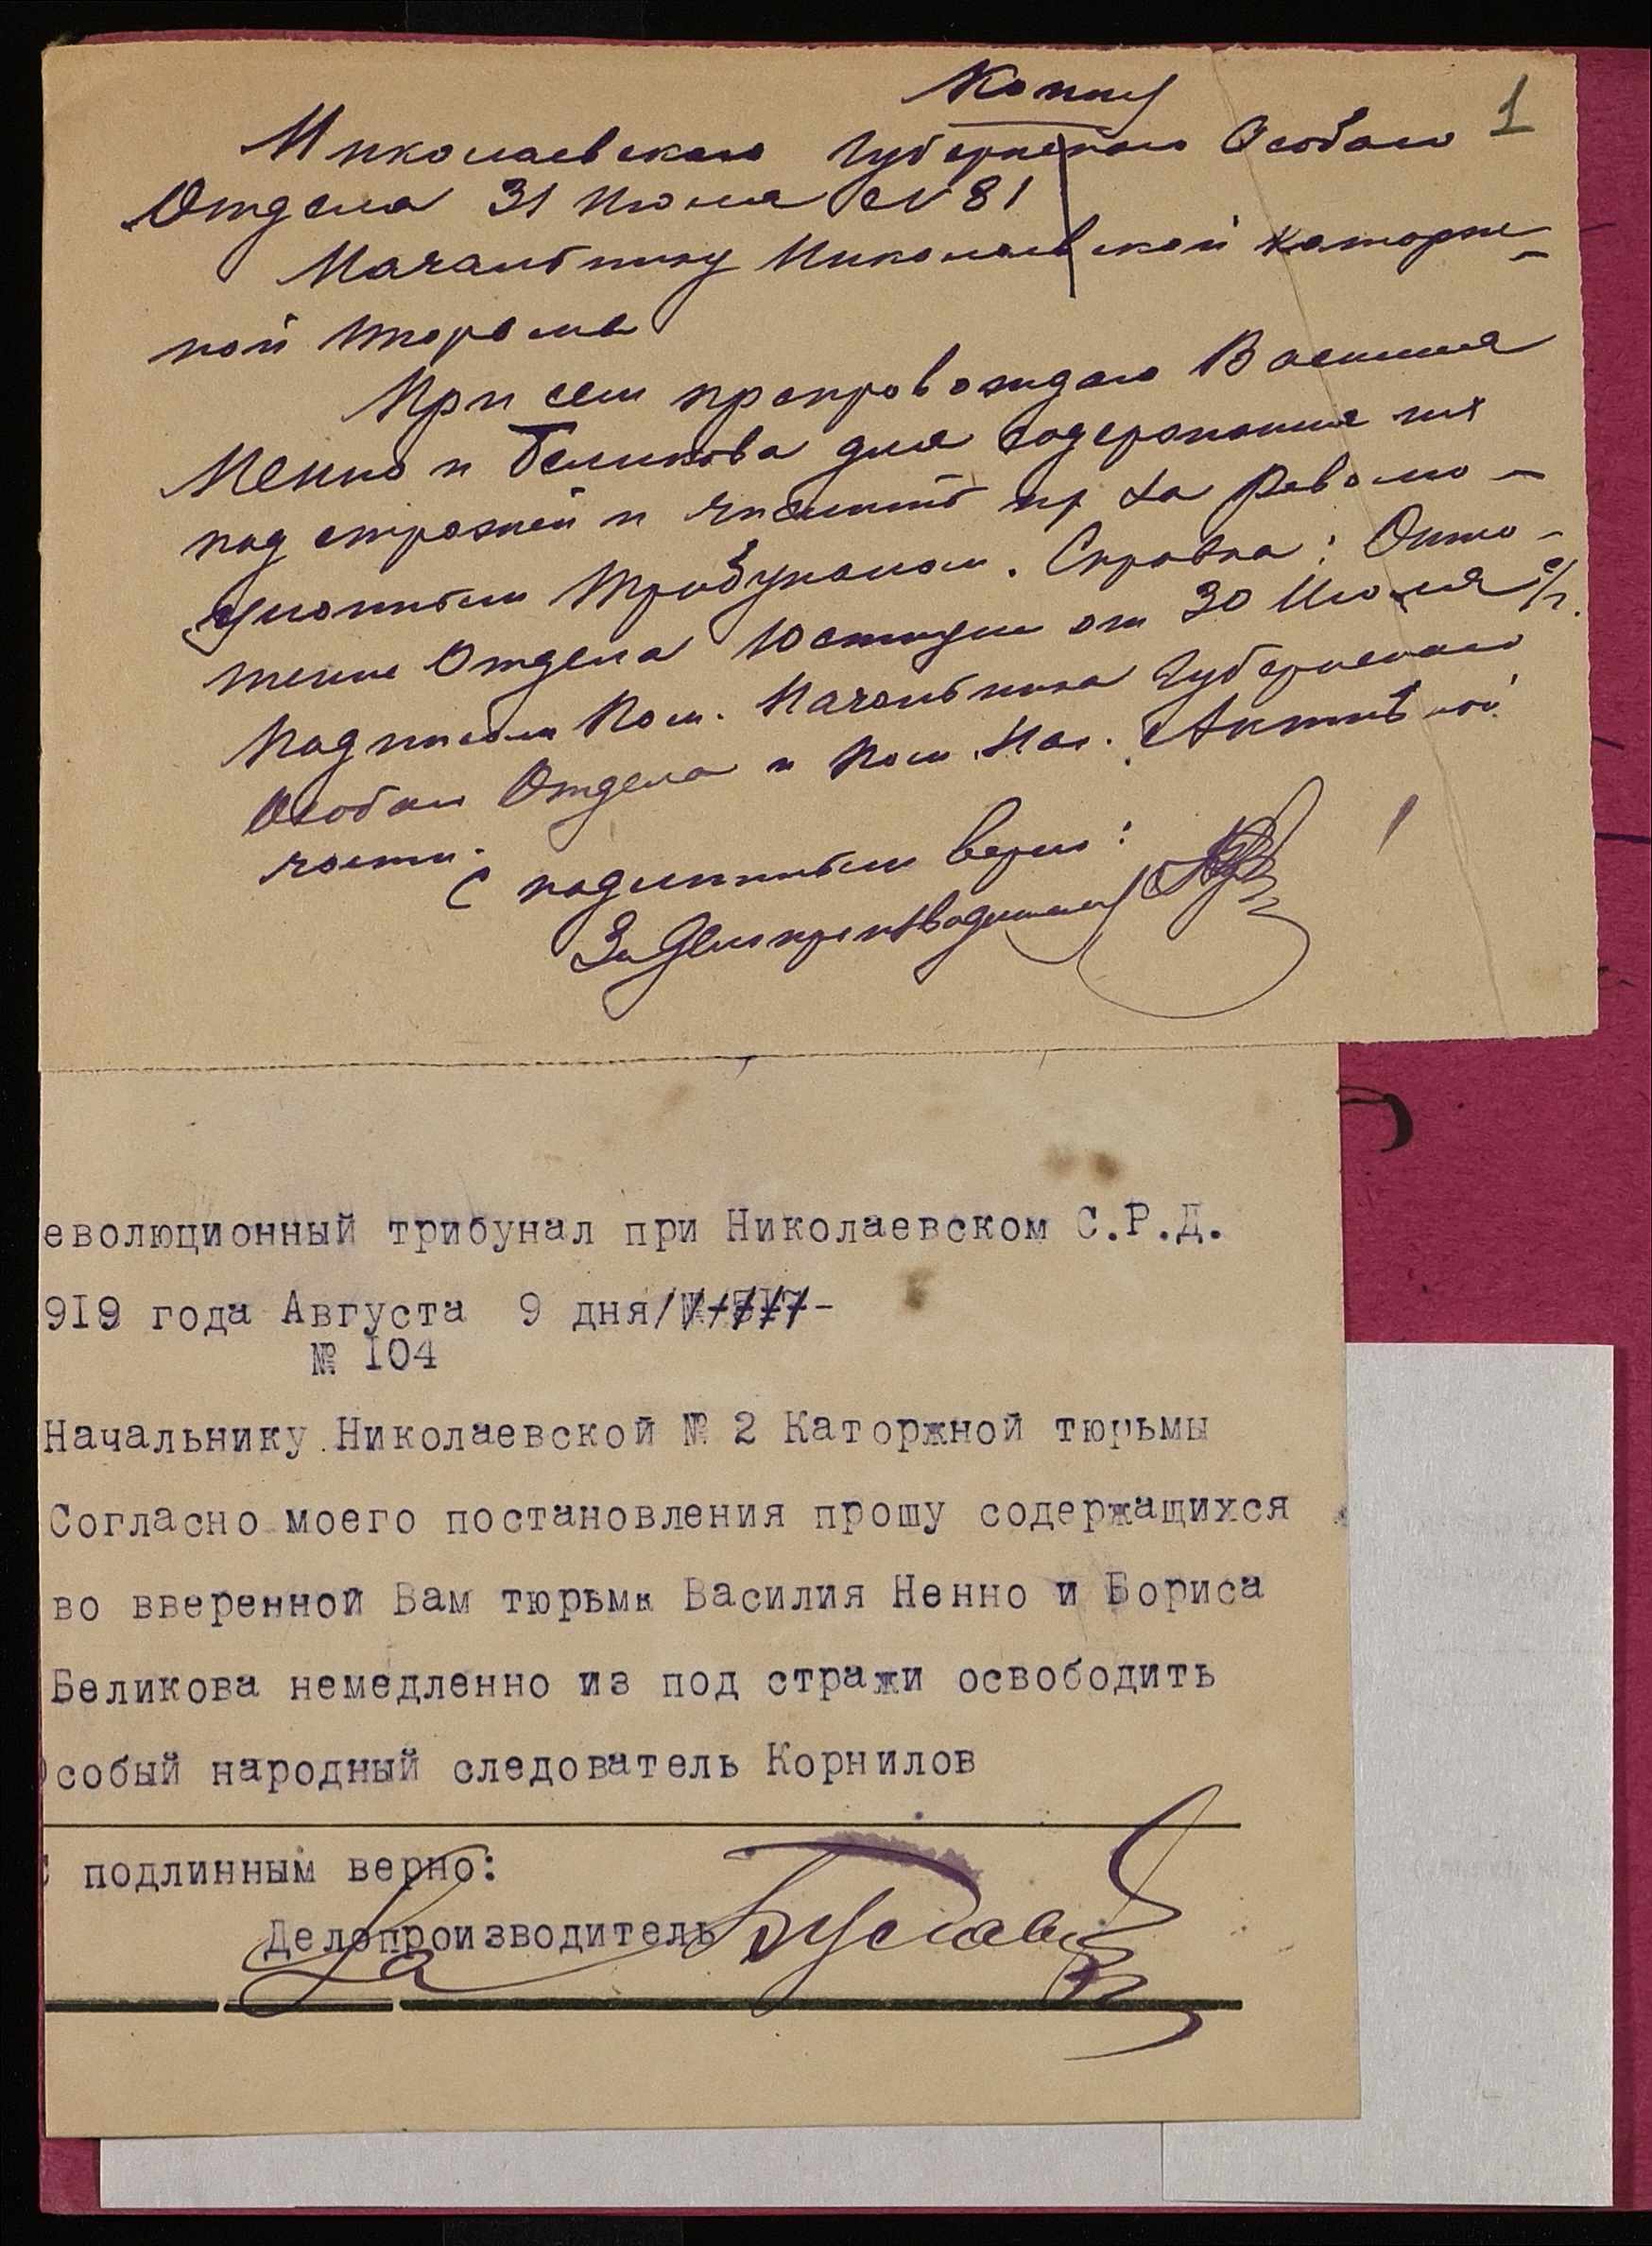 Копия
1
Николаевского Губернского Особого
Отдела 31 Июля № 81
Начальнику Николаевской каторж-
ной тюрьмы
При сем препровождаю Василия
Ненно и Беликова для содержания их
под стражей и числить их за Револю-
ционным Трибуналом. Справка: Отно-
шение Отдела Юстиции от 30 Июля с/г.
Подписали Пом. Начальника Губернского
Особого Отдела и Пом. Нач. Активной
части.
С подлинным верно:
За Делопроизводителя
еволюционный трибунал при Николаевском С.Р.Д.
9I9 года Августа 9 дня/
№ I04
Начальнику Николаевской № 2 Каторжной тюрьмы
Согласно моего постановления прошу содержащихся
во вверенной Вам тюрьмн Василия Ненно и Бориса
Беликова немедленно из под стражи освободить
собый народный следователь Корнилов
С подлинным верно:
За Делопроизводитель